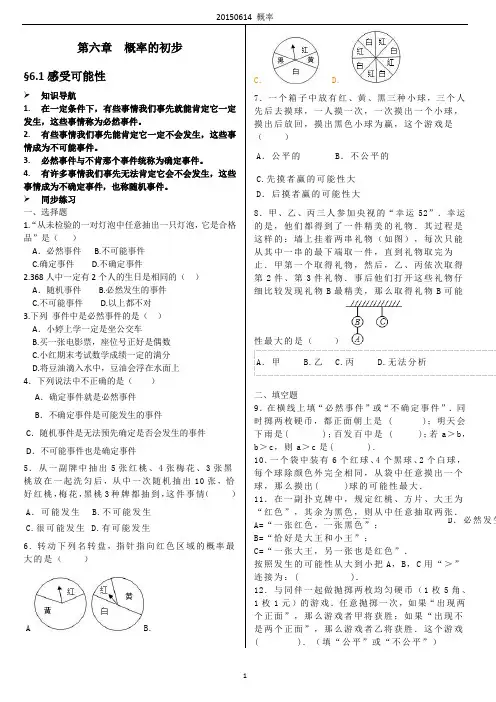 20150614 概率
第六章 概率的初步
§6.1感受可能性
➢ 知识导航
1. 在一定条件下，有些事情我们事先就能肯定它一定
发生，这些事情称为必然事件。
2. 有些事情我们事先能肯定它一定不会发生，这些事
情成为不可能事件。
3. 必然事件与不肯那个事件统称为确定事件。
4. 有许多事情我们事先无法肯定它会不会发生，这些
事情成为不确定事件，也称随机事件。
➢ 同步练习
一、选择题
1.“从未检验的一对灯泡中任意抽出一只灯泡，它是合格
品”是（ ）
A．必然事件 B.不可能事件
C.确定事件 D.不确定事件
2.368人中一定有2个人的生日是相同的（ ）
A．随机事件 B.必然发生的事件
C.不可能事件 D.以上都不对
3.下列 事件中是必然事件的是（ ）
A．小婷上学一定是坐公交车
B.买一张电影票，座位号正好是偶数
C.小红期末考试数学成绩一定的满分
D.将豆油滴入水中，豆油会浮在水面上
4．下列说法中不正确的是（ ）
A．确定事件就是必然事件
B．不确定事件是可能发生的事件
C．随机事件是无法预先确定是否会发生的事件
D．不可能事件也是确定事件
5．从一副牌中抽出5张红桃、4张梅花、3张黑
桃放在一起洗匀后，从中一次随机抽出10张，恰
好红桃,梅花,黑桃3种牌都抽到,这件事情（ ）
A．可能发生 B.不可能发生
C.很可能发生 D.有可能发生
6．转动下列名转盘，指针指向红色区域的概率最
大的是（ ）
红
黄
A
红
黄
白
B．
红
黑
黄
白
C．
白
红
白
红
白
红
白
红
D．
7．一个箱子中放有红、黄、黑三种小球，三个人
先后去摸球，一人摸一次，一次摸出一个小球，
摸出后放回，摸出黑色小球为赢，这个游戏是
（ ）
A．公平的 B．不公平的
C.先摸者赢的可能性大
D．后摸者赢的可能性大
8．甲、乙、丙三人参加央视的“幸运52”．幸运
的是，他们都得到了一件精美的礼物．其过程是
这样的：墙上挂着两串礼物（如图），每次只能
从其中一串的最下端取一件，直到礼物取完为
止．甲第一个取得礼物，然后，乙、丙依次取得
第2件、第3件礼物．事后他们打开这些礼物仔
细比较发现礼物B最精美，那么取得礼物B可能
B
C
A
性最大的是（ ）
A．甲 B.乙 C.丙 D.无法分析
二、填空题
9.在横线上填“必然事件”或“不确定事件”．同
时掷两枚硬币，都正面朝上是（ ）；明天会
下雨是( )；百发百中是（ ）；若a＞b，
b＞c，则a＞c是( )．
10.一个袋中装有6个红球、4个黑球、2个白球，
每个球除颜色外完全相同，从袋中任意摸出一个
球，那么摸出( )球的可能性最大．
11．在一副扑克牌中，规定红桃、方片、大王为
“红色”，其余为黑色，则从中任意抽取两张．
A=“一张红色，一张黑色”；
D．必然发生
B=“恰好是大王和小王”；
C=“一张大王，另一张也是红色”．
按照发生的可能性从大到小把A，B，C用“＞”
连接为：( )．
12．与同伴一起做抛掷两枚均匀硬币（1枚5角、
1枚1元）的游戏．任意抛掷一次，如果“出现两
个正面”，那么游戏者甲将获胜；如果“出现不
是两个正面”，那么游戏者乙将获胜．这个游戏
( )．（填“公平”或“不公平”）
1